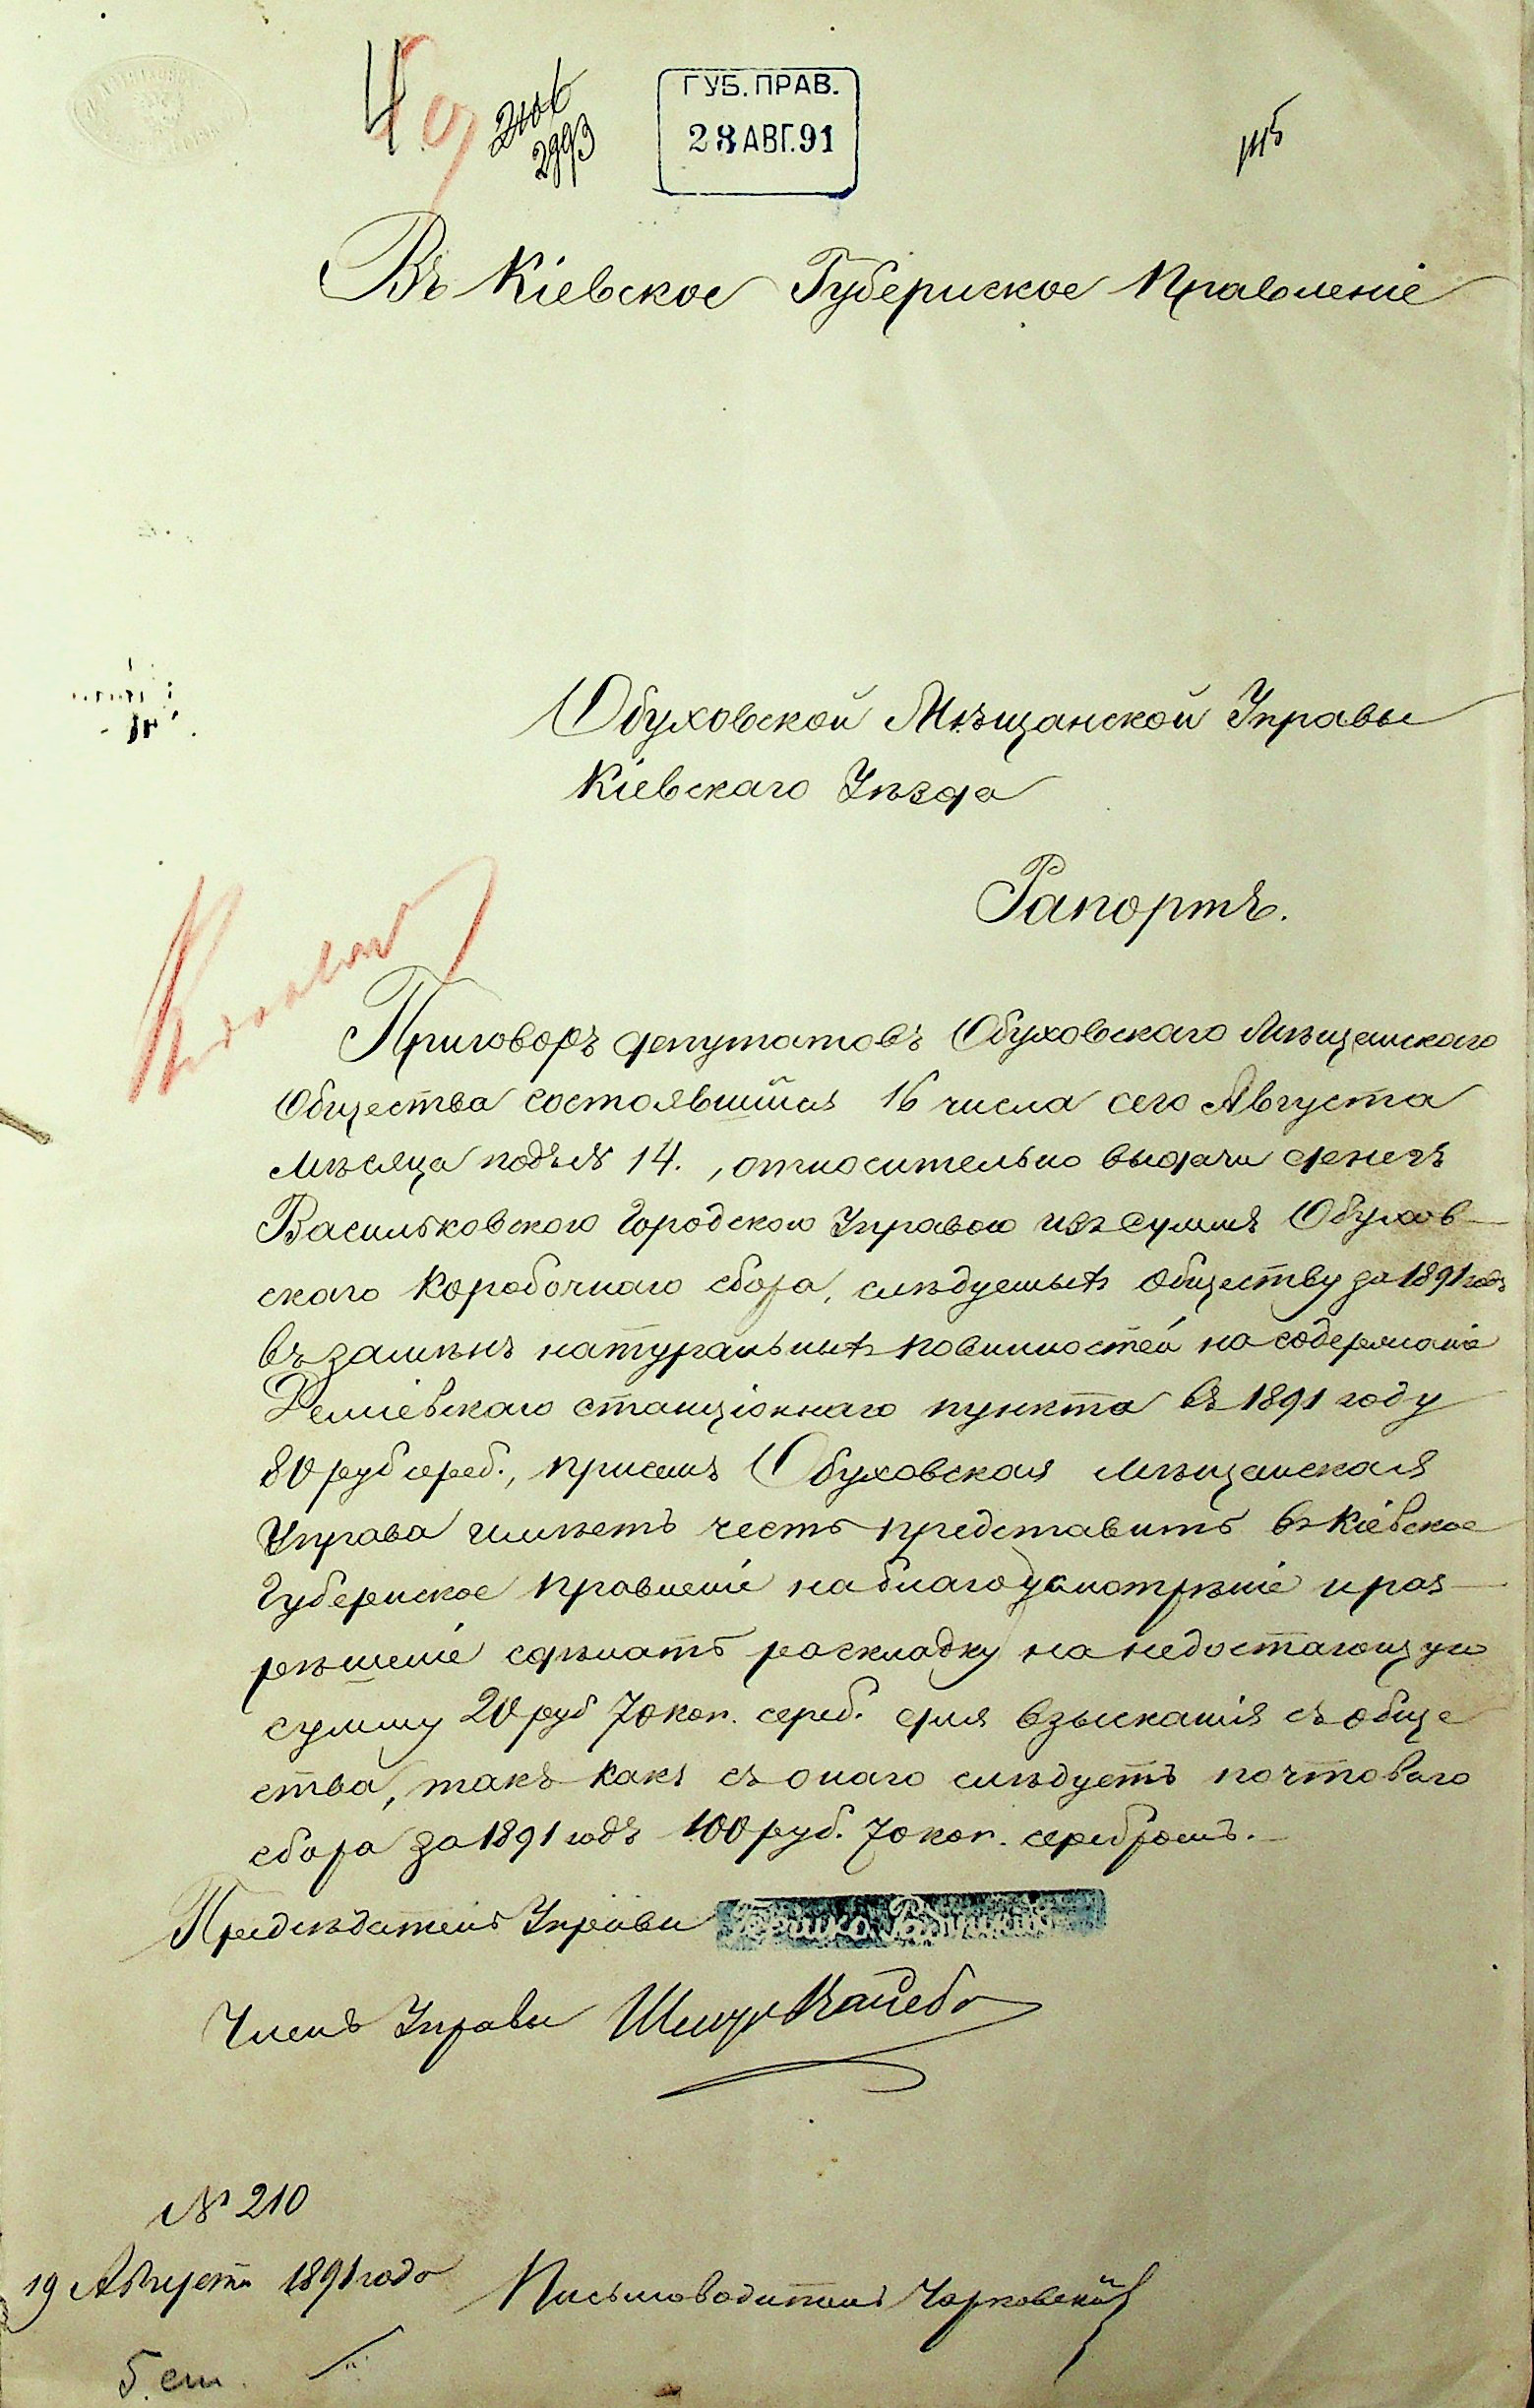 49
2893
ГУБ. ПРАВ.
28 АВГ. 91
Въ Кіевское Губернское Правленіе
Обуховской Мѣщанской Управы
Кіевскаго Уѣзда
Рапортъ.
Приговоръ депутатовъ Обуховскаго Мѣщанскаго
Общества состоявшійся 16 числа сего Августа
мѣсяца подъ № 14., относительно выдачи денегъ
Васильковскою Городскою Управою изъ суммъ Обухов-
скаго Коробочнаго сбора, слѣдуемыхъ обществу за 1891 годъ
въ замѣнъ натуральныхъ повинностей на содержаніе
Деміевскаго станціоннаго пункта въ 1891 году
80 руб сереб., присемъ Обуховская Мѣщанская
Управа имѣетъ честь представить въ Кіевское
Губернское Правленіе на благоусмотрѣніе и раз-
рѣшеніе сдѣлать раскладку на недостающую
сумму 20 руб 70 коп. сереб. для взысканія съ обще
ства, такъ какъ съ онаго слѣдуетъ почтоваго
сбора за 1891 годъ 100 руб. 70 коп. серебромъ.-
Предсѣдатель Управы
Членъ Управы
№ 210
19 Августа 1891 года Письмоводитель Чарковскій